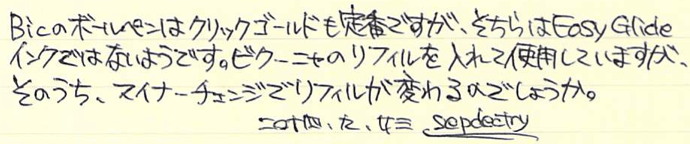 Bicのボールペンはクリックゴールドも定番ですが、そちらはEasy Glide
インクではないようです。ビクーニャのリフィルを入れて使用していますが、
そのうち、マイナーチェンジでリフィルが変わるのでしょうか。
sepdectry